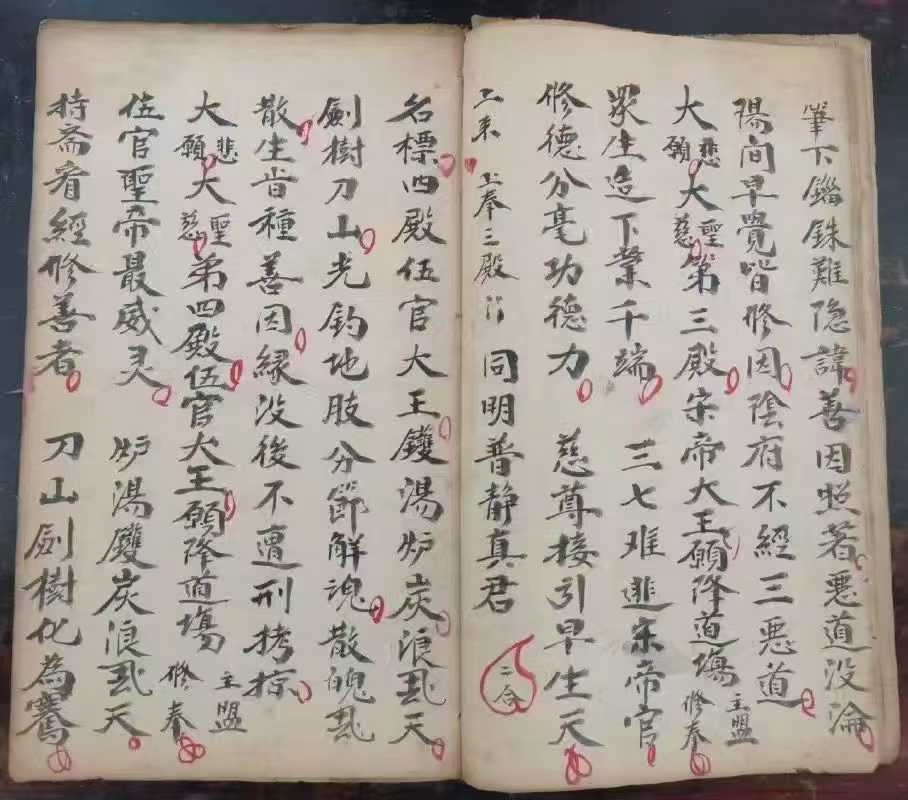 筆下錙銖難隐諱善因照著惡道没淪
陽间早覺皆修因陰府不經三惡道
大悲願大聖慈第三殿宋帝大王願降道場主盟修奉
眾生造下業千端 三七难逃宋帝官
修德分毫功德力 慈尊接引早生天
二来 上奉三殿 同明普静真君 二合
名標四殿伍官大王鑊湯炉炭浪滔天
劍樹刀山光鈞地肢分節解魂散魄飛
散生皆種善因縁没後不遭刑拷掠
大悲願大聖慈第四殿伍官大王願降道場主盟修奉
伍官聖帝最威灵 炉湯鑊炭浪滔天
持斋看經修善者 刀山劍樹化為騫